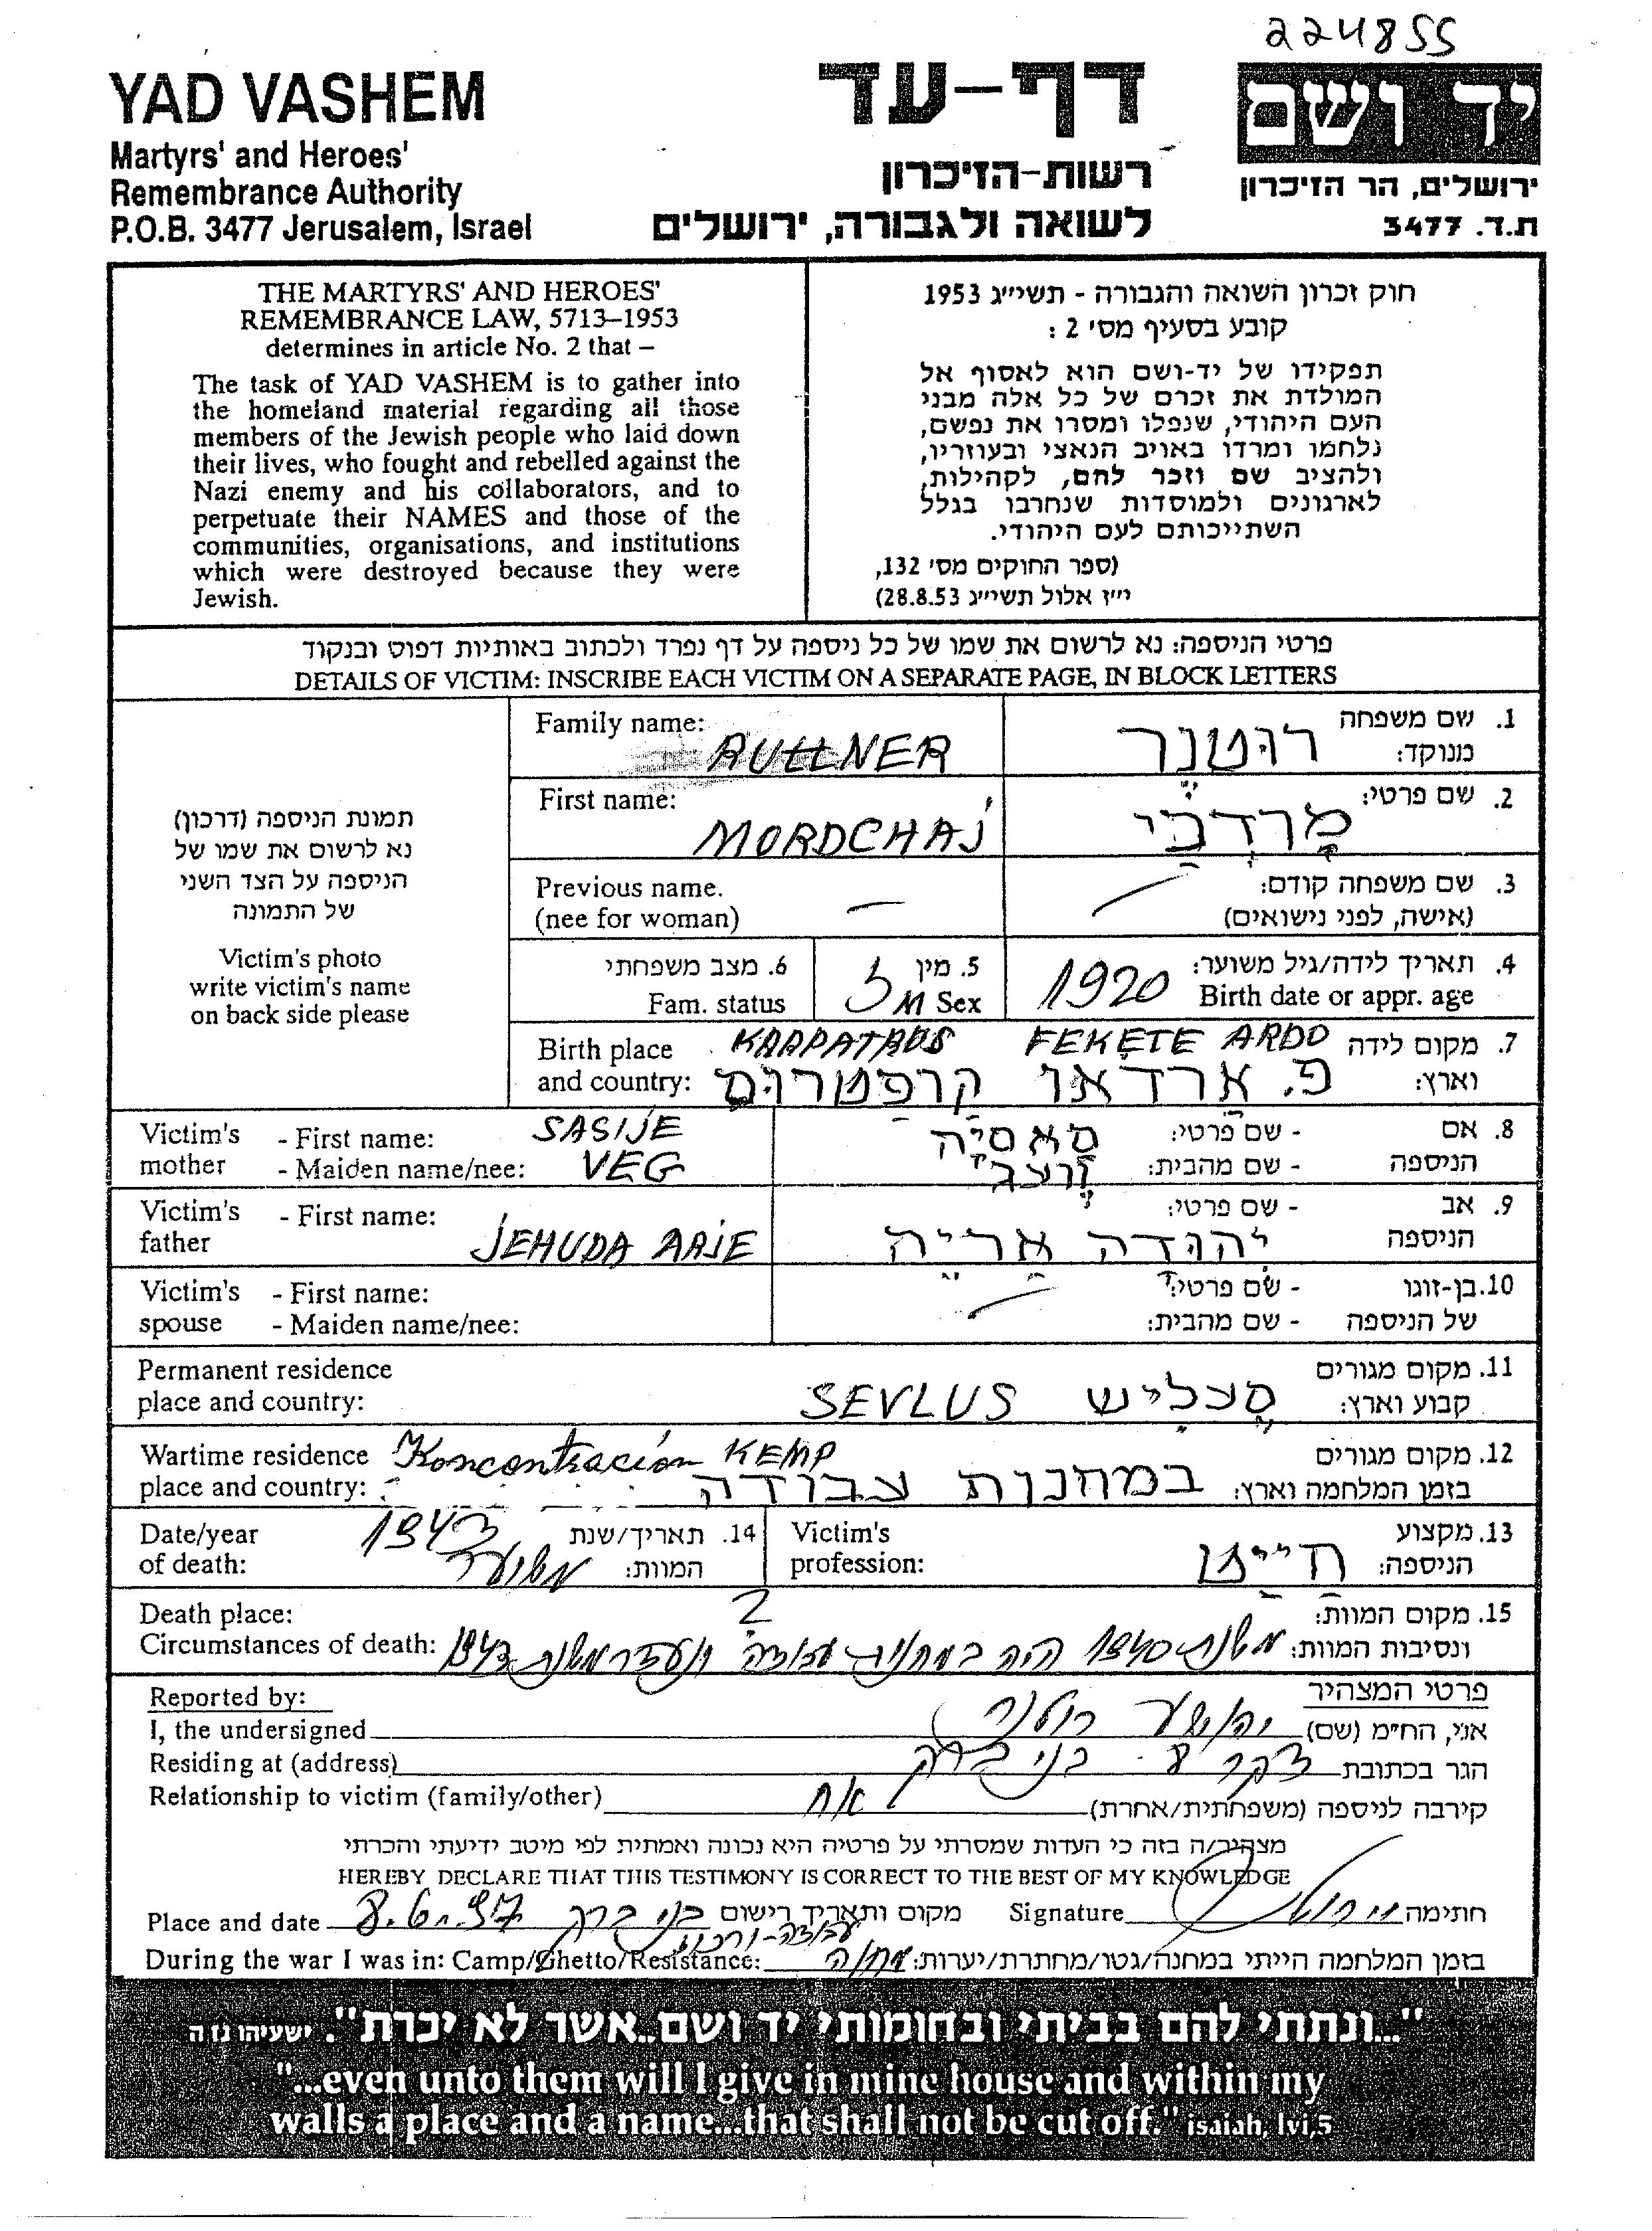 224855
YAD VASHEM
Martyrs' and Heroes'
Remembrance Authority
P.O.B. 3477 Jerusalem, Israel
דף-עד
רשות-הזיכרון
לשואה ולגבורה, ירושלים
יד ושם
ירושלים, הר הזיכרון
ת.ד. 3477
THE MARTYRS' AND HEROES'
REMEMBRANCE LAW, 5713–1953
determines in article No. 2 that –
The task of YAD VASHEM is to gather into
the homeland material regarding all those
members of the Jewish people who laid down
their lives, who fought and rebelled against the
Nazi enemy and his collaborators, and to
perpetuate their NAMES and those of the
communities, organisations, and institutions
which were destroyed because they were
Jewish.
חוק זכרון השואה והגבורה - תשי״ג 1953
קובע בסעיף מס׳ 2 :
תפקידו של יד-ושם הוא לאסוף אל
המולדת את זכרם של כל אלה מבני
העם היהודי, שנפלו ומסרו את נפשם,
נלחמו ומרדו באויב הנאצי ובעוזריו,
ולהציב שם וזכר להם, לקהילות,
לארגונים ולמוסדות שנחרבו בגלל
השתייכותם לעם היהודי.
(ספר החוקים מס׳ 132,
י״ז אלול תשי״ג 28.8.53)
פרטי הניספה: נא לרשום את שמו של כל ניספה על דף נפרד ולכתוב באותיות דפוס ובנקוד
DETAILS OF VICTIM: INSCRIBE EACH VICTIM ON A SEPARATE PAGE, IN BLOCK LETTERS
תמונת הניספה (דרכון)
נא לרשום את שמו של
הניספה על הצד השני
של התמונה
Victim's photo
write victim's name
on back side please
Family name: RUTTNER
1. שם משפחה מנוקד: רוטנר
First name: MORDCHAJ
2. שם פרטי: מרדכי
Previous name. —
(nee for woman)
3. שם משפחה קודם:
(אישה, לפני נישואים)
4. תאריך לידה/גיל משוער: 1920
Birth date or appr. age
5. מין ז
M Sex
6. מצב משפחתי
Fam. status
7. מקום לידה FEKETE ARDO KARPATRUS
Birth place
and country:
וארץ: פ. ארדאו קרפטרוס
Victim's mother - First name: SASIJE
- Maiden name/nee: VEG
8. אם הניספה - שם פרטי: סאסיה
- שם מהבית: ועג
Victim's father - First name: JEHUDA ARJE
9. אב הניספה - שם פרטי: יהודה אריה
Victim's spouse - First name:
- Maiden name/nee:
10. בן-זוגו של הניספה - שם פרטי:
- שם מהבית:
Permanent residence
place and country: SEVLUS
11. מקום מגורים
קבוע וארץ: סבליש
Wartime residence Koncentración KEMP
place and country:
12. מקום מגורים
בזמן המלחמה וארץ: במחנות עבודה
Date/year of death: 1943
14. תאריך/שנת המוות: משוער
Victim's profession:
13. מקצוע הניספה: חייט
Death place: ?
Circumstances of death:
15. מקום המוות:
ונסיבות המוות: משנת 1940 היה במחנות עבודה ונעדר משנת 1943
Reported by:
פרטי המצהיר
I, the undersigned
אני, הח״מ (שם) יהושע רוטנר
Residing at (address)
הגר בכתובת דקר 8 בני ברק
Relationship to victim (family/other)
קירבה לניספה (משפחתית/אחרת) אח
מצהיר/ה בזה כי העדות שמסרתי על פרטיה היא נכונה ואמתית לפי מיטב ידיעתי והכרתי
HEREBY DECLARE THAT THIS TESTIMONY IS CORRECT TO THE BEST OF MY KNOWLEDGE
Place and date 8.6.97 בני ברק מקום ותאריך רישום
Signature חתימה
During the war I was in: Camp/Ghetto/Resistance:
בזמן המלחמה הייתי במחנה/גטו/מחתרת/יערות: מחנה עבודה
"...ונתתי להם בביתי ובחומותי יד ושם..אשר לא יכרת". ישעיהו נו ה
"...even unto them will I give in mine house and within my
walls a place and a name...that shall not be cut off." isaiah, lvi,5